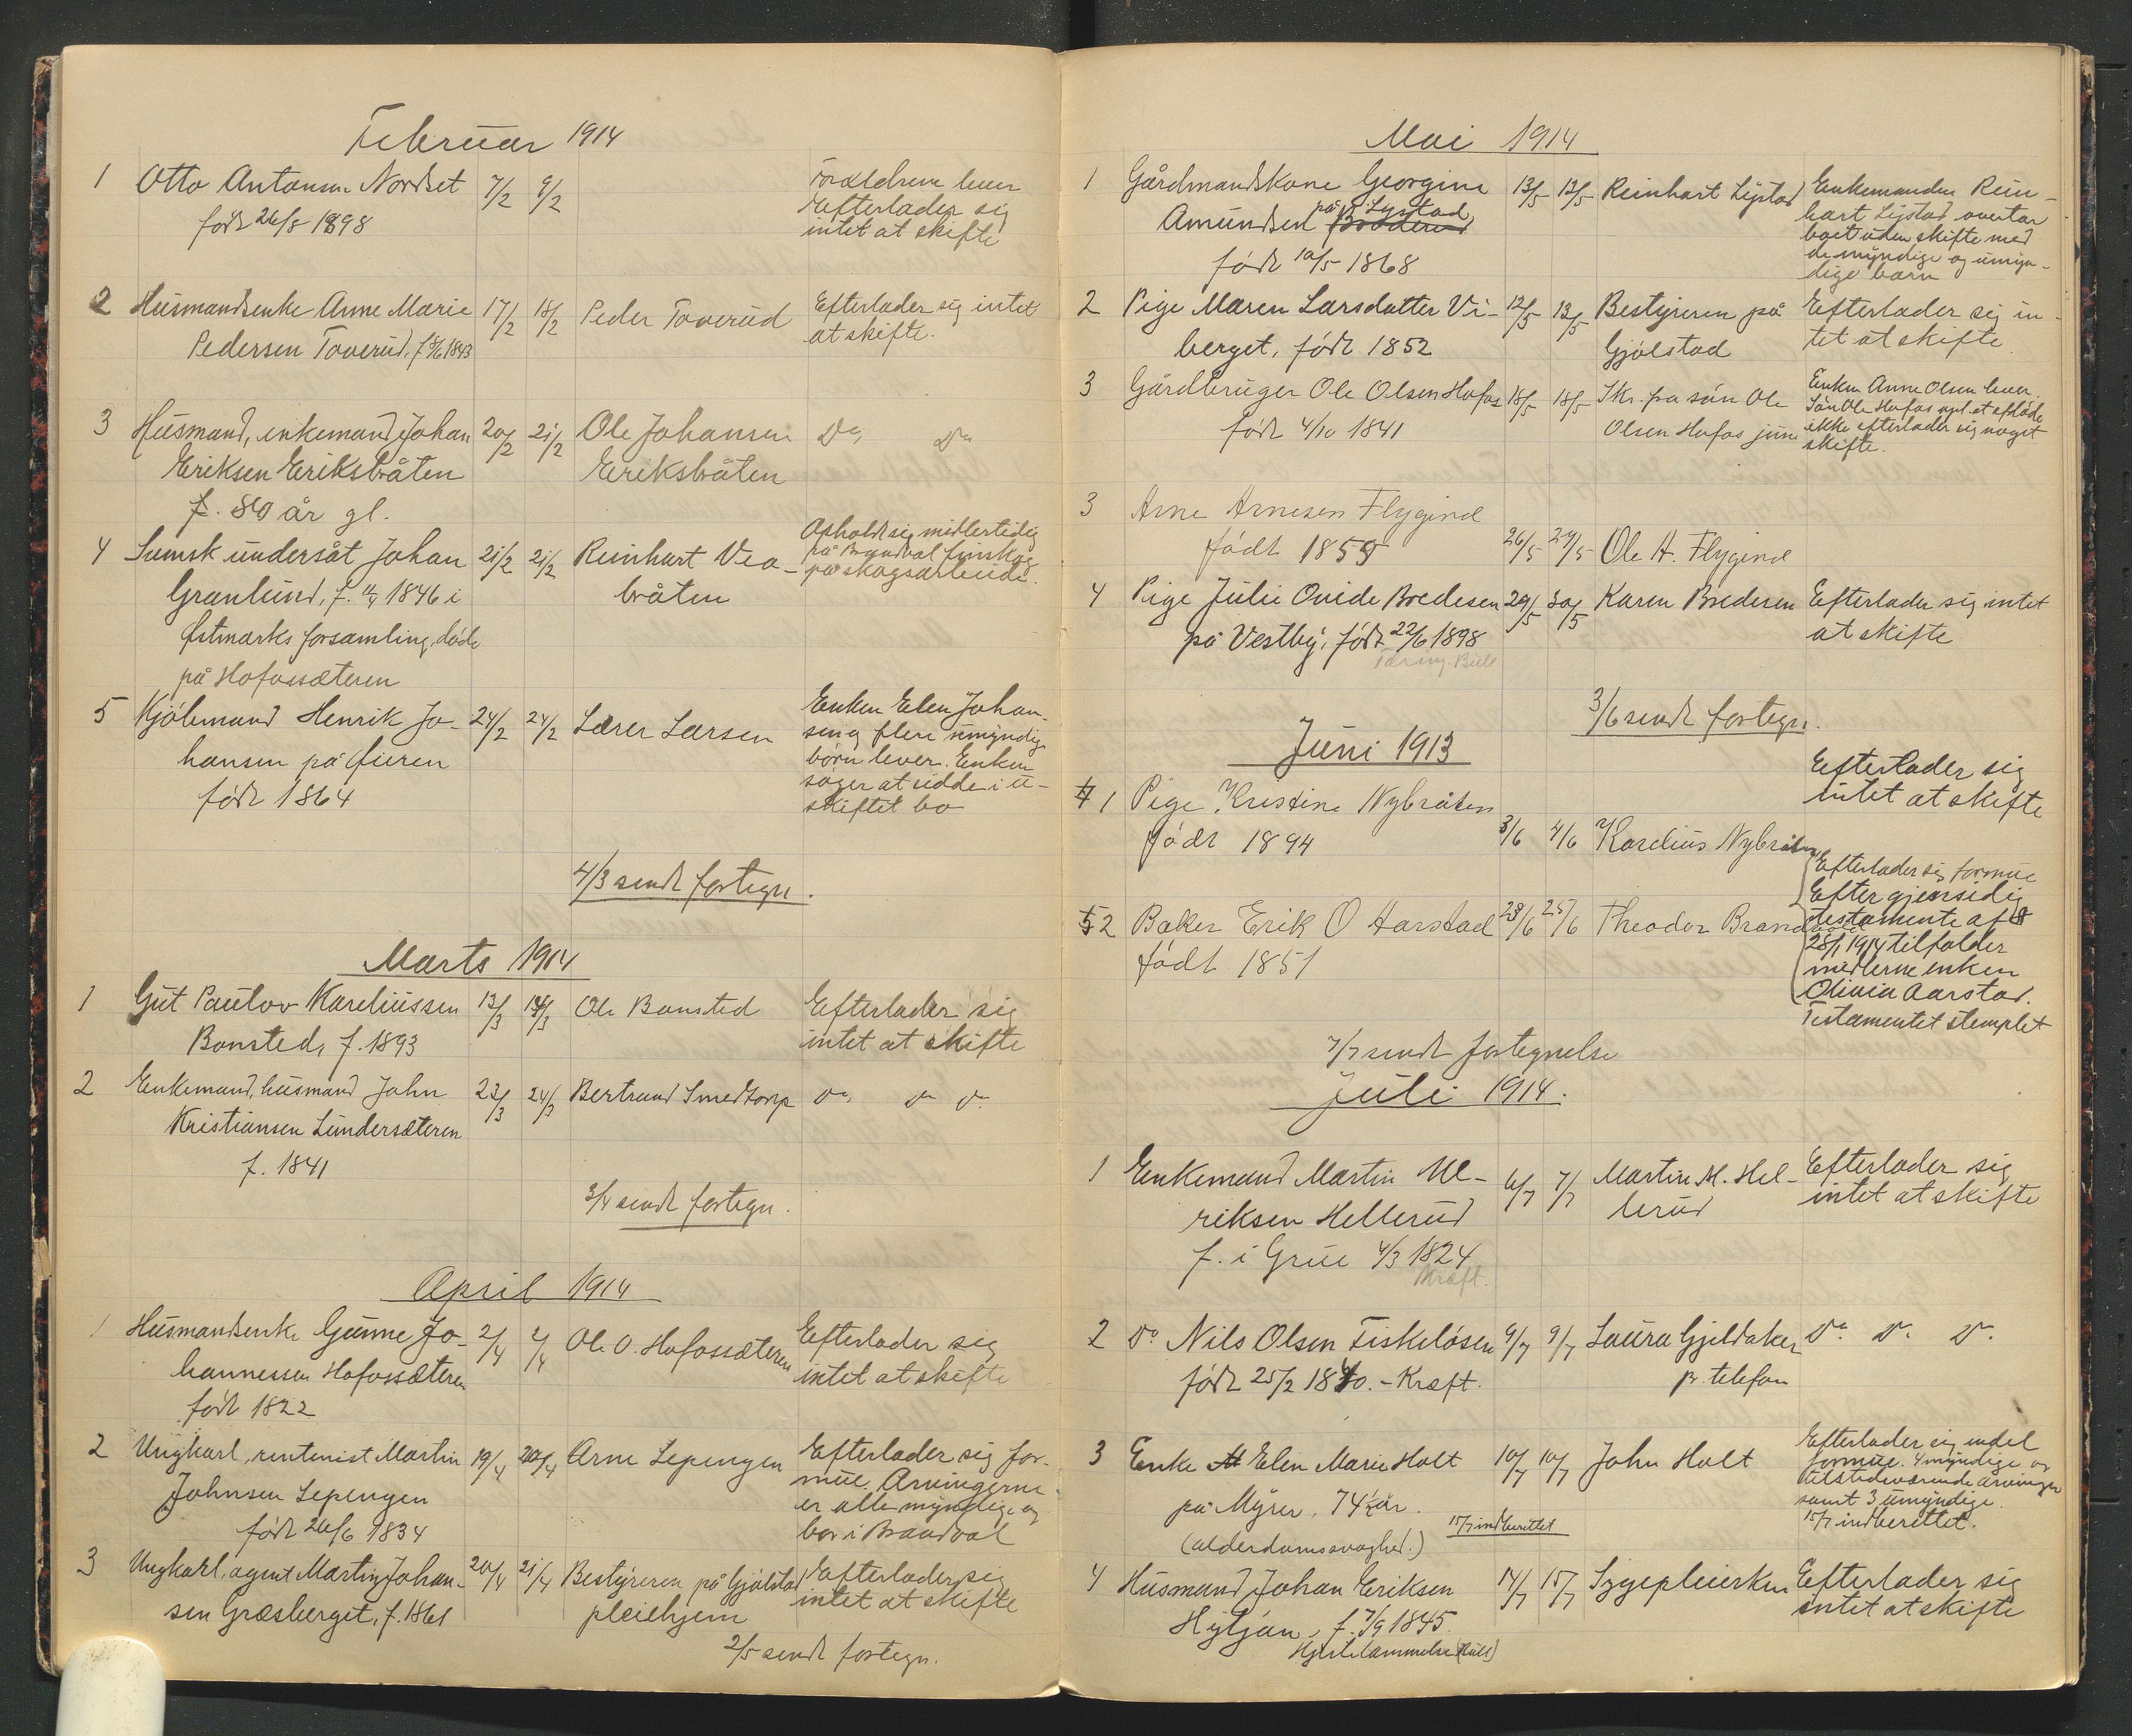 Februar 1914
1 Otto Antonsen Nordset 7/2 9/2 Forældrene lever
født 26/8 1898 Efterlader sig
intet at skifte
2 Husmandsenke Anne Marie 17/2 18/2 Peder Toverud Efterlader sig intet
Pedersen Toverud, f. 1843 at skifte.
3 Husmand, enkemand Johan 20/2 21/2 Ole Johansen Do Do
Eriksen Eriksbråten Eriksbråten
f. 80 år gl.
4 Svensk undersåt Johan 21/2 21/2 Reinhart Vea- Opholdt sig midlertidig
Granlund, f. 1846 i bråten på Brandval Finskog
Østmarks forsamling, døde på skogsarbeide.
på Hofossæteren
5 Kjøbmand Henrik Jo- 24/2 24/2 Lærer Larsen Enken Elen Johan-
hansen på Øieren sen og flere umyndige
født 1864 børn lever. Enken
søger at sidde i u-
skiftet bo
4/3 sendt fortegn.
Marts 1914
1 Gut Paulov Kareliussen 13/3 14/3 Ole Bonsted Efterlader sig
Bonsted, f. 1893 intet at skifte
2 Enkemand, husmand John 23/3 24/3 Bertrand Smedtorp Do Do Do
Kristiansen Lundersæteren
f. 1841
3/4 sendt fortegn.
April 1914
1 Husmandsenke Gunne Jo- 2/4 2/4 Ole O. Hofossæteren Efterlader sig
hannessen Hofossæteren intet at skifte
født 1822
2 Ungkarl, rentenist Martin 19/4 20/4 Arne Lepengen Efterlader sig for-
Johnsen Lepengen mue. Arvingerne
født 26/6 1834 er alle myndige og
bor i Brandval
3 Ungkarl, agent Martin Johan- 20/4 21/4 Bestyreren på Gjølstad Efterlader sig
sen Græsberget, f. 1861 pleiehjem intet at skifte
2/5 sendt fortegn.
Mai 1914
1 Gårdmandskone Georgine 13/5 13/5 Reinhart Lystad Enkemanden Rein-
Amundsen på Lystad hart Lystad overtar
født 10/5 1868 boet uden skifte med
de myndige og umyn-
dige barn
2 Pige Maren Larsdatter Vi- 12/5 13/5 Bestyreren på Efterlader sig in-
berget, født 1852 Gjølstad tet at skifte
3 Gårdbruger Ole Olsen Hofos 18/5 18/5 Skr. fra søn Ole Enken Anne Olsen lever
født 4/10 1841 Olsen Hofos jun. Søn Ole Hofos opl. at afdøde
ikke efterlader sig noget
skifte.
3 Arne Arnesen Flygind
født 1859 26/5 29/5 Ole A. Flygind
4 Pige Julie Ovide Bredesen 29/5 30/5 Karen Bredesen Efterlader sig intet
på Vestby, født 22/6 1898 at skifte
Tæring.
3/6 sendt fortegn.
Juni 1913
1 Pige Kristine Nybråten Efterlader sig
født 1894 3/6 4/6 Karelius Nybråten intet at skifte
2 Baker Erik O Harstad 23/6 25/6 Theodor Brandvold
født 1851
Efterlader sig formue
Efter gjensidig
testamente af
28/1 1914 tilfalder
midlerne enken
Olivia Aarstad.
Testamentet stemplet
7/7 sendt fortegnelse
Juli 1914.
1 Enkemand Martin Ul- 6/7 7/7 Martin M. Hel- Efterlader sig
riksen Hellerud lerud intet at skifte
f. i Grue 4/3 1824
Kræft.
2 Do Nils Olsen Fiskeløsen 9/7 9/7 Laura Gjeldaker Do Do Do
født 25/2 1840. - Kræft. pr telefon
3 Enke Elen Marie Holt 10/7 10/7 John Holt Efterlader sig endel
på Myrer, 74½ år. formue. 4 myndige og
(alderdomssvaghed.) 15/7 indberettet tilstedeværende arvinger
samt 3 umyndige.
15/7 indberettet.
4 Husmand Johan Eriksen 14/7 15/7 Sygepleiersken Efterlader sig
Hytjan, f. 7/9 1845. intet at skifte
Hjertelammelse